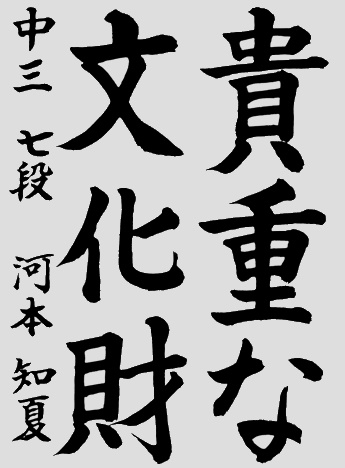 貴重な
文化財
中三 七段 河本 知夏